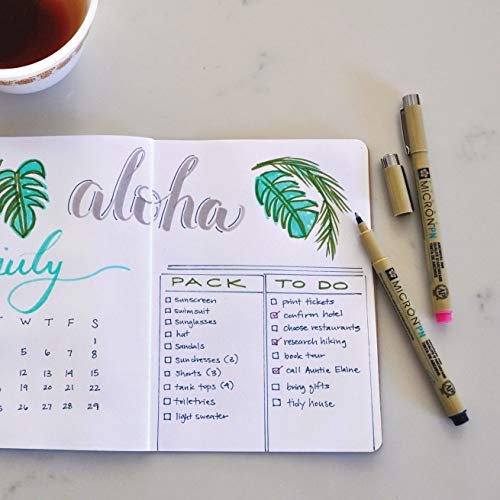 aloha
july
T W T F S
1
5 6 7 8
12 13 14 15
19 20 21 22
26 27 28 29
PACK
☐ sunscreen
☐ swimsuit
☐ sunglasses
☐ hat
☐ sandals
☐ sundresses (2)
☐ shorts (3)
☐ tank tops (4)
☐ toiletries
☐ light sweater
TO DO
☐ print tickets
☑ confirm hotel
☐ choose restaurants
☑ research hiking
☐ book tour
☑ call Auntie Elaine
☐ bring gifts
☐ tidy house
MICRON PN
MICRON PN